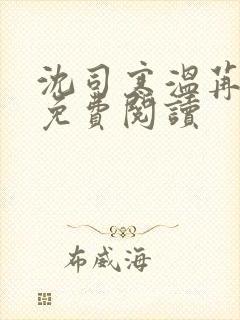 沈司寒溫苒
免費閱讀
布威海